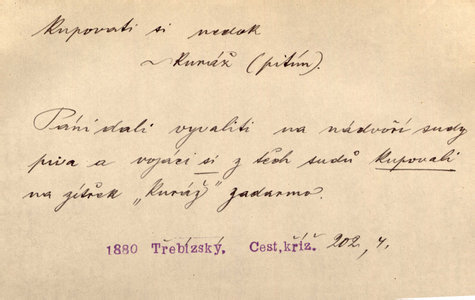 Kupovati si nedok
~ Kuráž (pitím).
Páni dali vyvaliti na nádvoří sudy
piva a vojáci si z těch sudů kupovali
na zítřek „Kuráž" zadarmo.
1880 Třebízský. Cest, kříž. 202, 4.